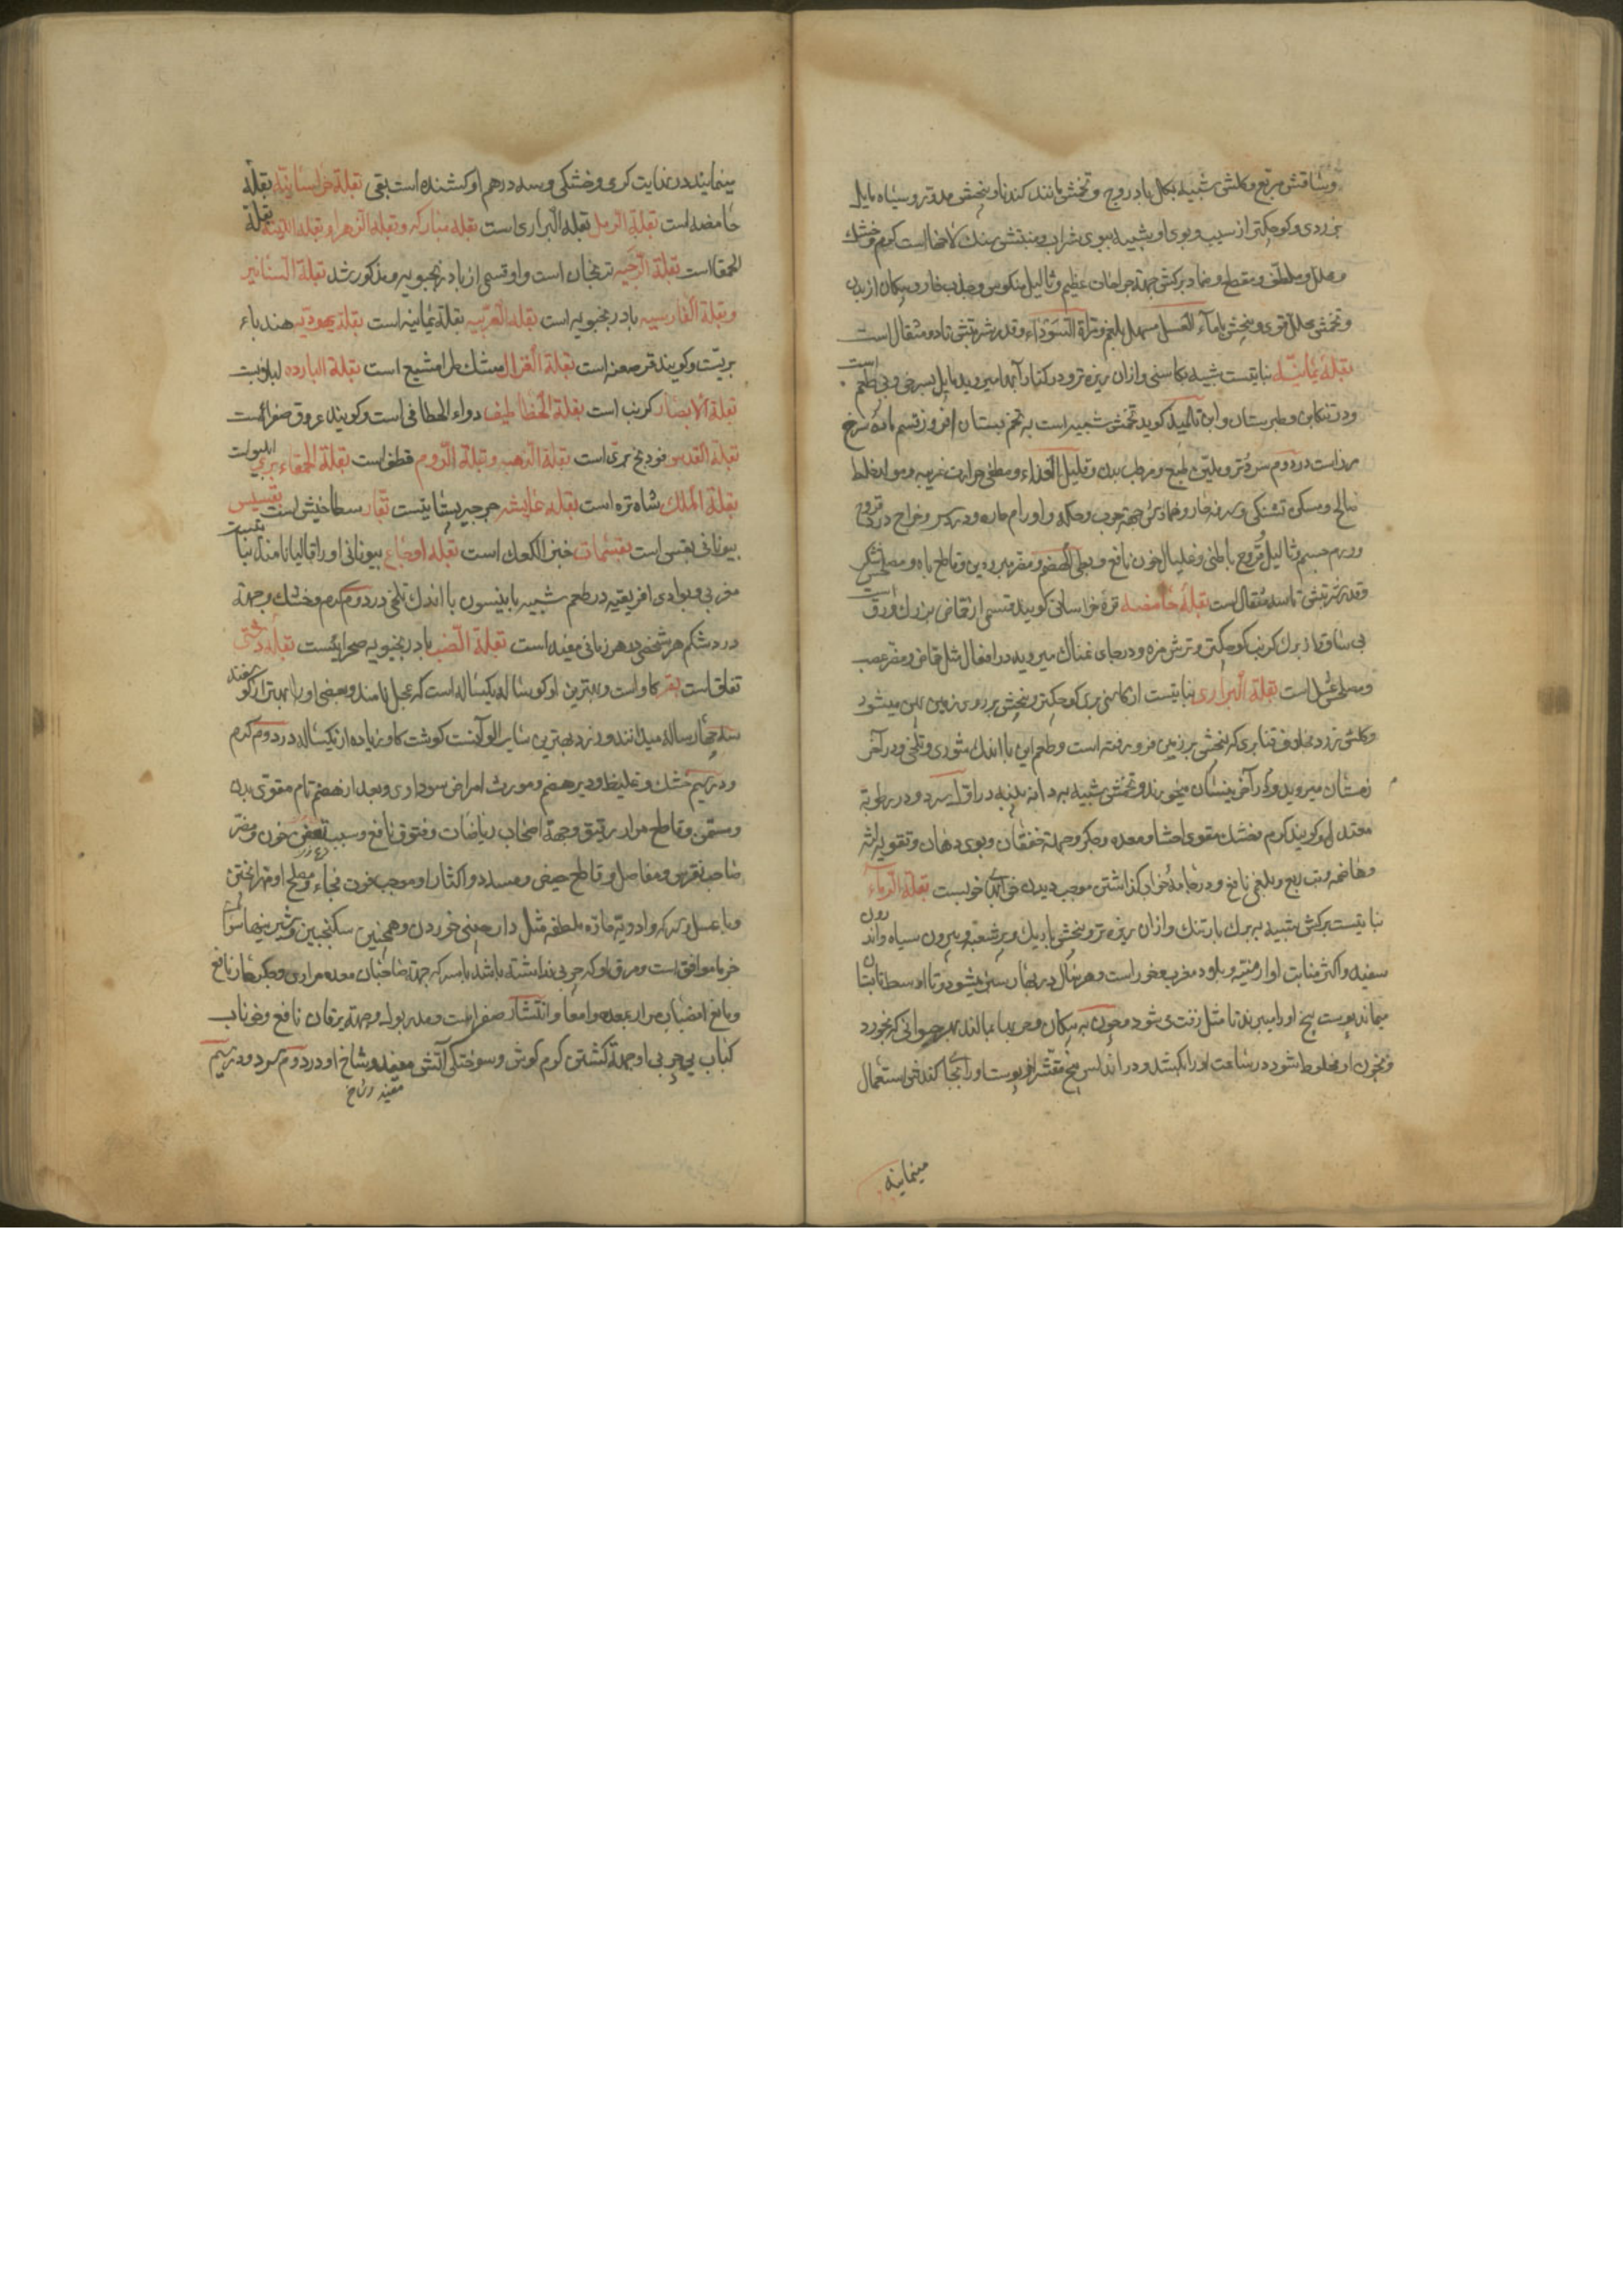 وساقش مربع و کلش شبیه بکل بادروج و تخمش مانند کندنا و بیخش مدور و سیاه مایل
بزردی و کوچکتر از سیب و بوی او شبیه ببوی شراب و منبتش سنک لاخها است کرم و خشک
و محلل و ملطف و مقطع و ضماد برکش جهة جراحات عظیم و ثالیل منکوس و جذب خار و پیکان از بدن
و تخمش محلل قوی و بیخش با ماء العسل مسهل بلغم و مرة السوداء و قدر شربتش تا دو مثقال است
بقلة یمانیه نباتیست شبیه بکاسنی و ازان ریزه تر و در کنار آبها میروید مایل بسرخی و بی طعم است
و در تنکابن و طبرستان و ابن تلمیذ کوید تخمش شبیه است به تخم بستان افروز قسم ماده سرخ
مرز است در دوم سرد و تر و ملین طبع و مرطب بدن و قلیل الغذاء و مطفی حرارت غریبه و مولد خلط
صالح و مسکن تشنکی و سرفه حار و ضمادش جهة جرب و حکه و اورام حاره و درد سر و خراج در قروح
ورم جسم و ثالیل قروح باطنی و غلیال خون نافع و بطی الهضم و مضر مبرودین و قاطع باه و مصلحش شکر
و قدر شربتش تا سه مثقال است بقلة حامضه تره خراسانی کویند قسمی از حماض بزرک ورق است
بی ساق از برک کرنب کوچکتر و ترش مزه و در جای نمناک میروید در افعال مثل حماض و مضر عصب
و مصلحش عسل است بقلة البراری نباتیست از کاسنی بری کوچکتر و بیخش بر روی زمین پهن میشود
و کلش زرد بخلاف قنابری که بیخش بر زمین فرو رفته است و طعم این با اندک شوری و تلخی و در آخر
زمستان میروید و در آخر نیسان میخورند و تخمش شبیه به دانه پنبه در اول سرد و در رطوبة
معتدل و کویند کرم و خشک مقوی احشا و معده و جکر و جهة خفقان و بوی دهان و تقویه لثه
و هاضمه و تب ربع و بلغمی نافع و در جامه خواب کذاشتن موجب دیدن خوابهای خوبست بقلة الرماء
نباتیست برکش شبیه به برک بارتنک و ازان ریزه تر و بیخش باریک و پر شعبه و بیرون سیاه و اندرون
سفید و اکثر منابت او ارمنیه و بلاد مغرب و خور است و هر سال در بهار سبز میشود و تا اوسط تابستان
میماند پوست بیخ او را میپزند تا مثل زفت می شود و چون به پیکان و حربها بمالند بهر حیوانی که بخورد
و بخون او مخلوط شود در ساعت او را بکشد و در اندلس بیخ مقشر از پوست او را بجای کندش استعمال
مینمایند
مینمایند در نهایت کرمی و خشکی و سه درهم او کشنده است بقی بقلة خراسانیة بقلة
حامضه است بقلة الرمل بقلة البراری است بقلة مبارکه و بقلة الزهرا و بقلة اللینة بقلة
الحمقا است بقلة الاترجیه ترنجان است و او قسمی از بادرنجبویه و مذکور شد بقلة السنانیر
و بقلة الفارسیه بادرنجبویه است بقلة العربیه بقلة یمانیه است بقلة یهودیه هندباء
بریست و کویند قرصعنه است بقلة الغزال مشک طرامشیع است بقلة الباردة لبلابست
بقلة الانصار کرنب است بقلة الخطاطیف دواء الخطافی است و کویند عروق صفر است
بقلة القدس فودنج بری است بقلة الذهب و بقلة الروم قطف است بقلة الحمقاء بری
بقلة الملک شاه تره است بقلة عایشه جرجیر بستانیست بقار سطاخیش است بقسیس
بیونانی بقس است بقسماط خبز الکعک است بقلة اوجاع بیونانی او را قالیانا مند نباتیست
مغربی و بوادی افریقیه در طعم شبیه بانیسون با اندک تلخی در دوم کرم و خشک و جهة
درد شکم هر شخصی در هر زمانی مفید است بقلة الضب بادرنجبویه صحرائیست بقلة دشتی
تفاف است بقر کاو است و بهترین او کوساله یکساله است که عجل نامند و بعضی او را بهتر از کوسفند
سه چهار ساله میدانند و زرد بهترین سایر الوانست کوشت کاو زیاده از یکساله در دوم کرم
و در سیم خشک و غلیظ و دیر هضم و مورث امراض سوداوی و بعد از هضم تام مقوی بدن
و مسمن و قاطع مرار رقیق و جهة اصحاب ریاضات و فتوق نافع و سبب تعفن خون و مضر
صاحب نقرس و مفاصل و قاطع حیض و مسدد و اکثار او موجب خون فجاء و مصلح او مهرا پختن
و با عسل و سرکه و ادویه حاره ملطفه مثل دارچینی خوردن و همچنین سکنجبین و شیر
خرما موافق است و مرق او که چربی نداشته باشد با سرکه جهة صاحبان معده مراری و جکر حار نافع
و مانع انصباب مرار بمعده و امعا و انتشار صفراست و مدر بول و جهة یرقان نافع و خوناب
کباب بی چربی او جهة کشتن کرم کوش و سوختکی آتش مفید و شاخ او در دوم سرد و در سیم
مفید و شاخ